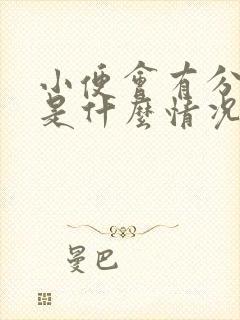 小便會有分
是什麼情況
曼巴